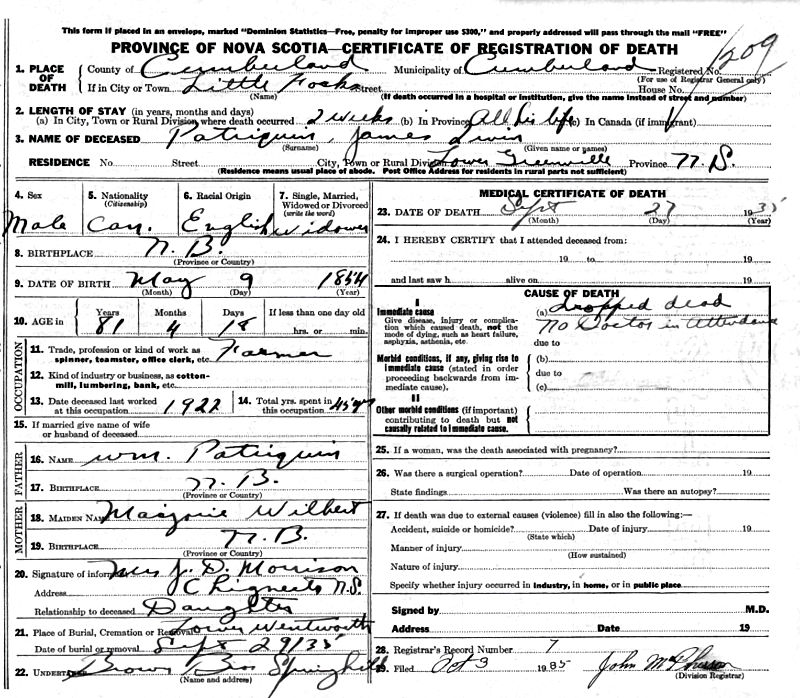 This form if placed in an envelope, marked "Dominion Statistics—Free, penalty for improper use $300," and properly addressed will pass through the mail "FREE"
PROVINCE OF NOVA SCOTIA—CERTIFICATE OF REGISTRATION OF DEATH
1209
1. PLACE OF DEATH County of Cumberland Municipality of Cumberland Registered No.
(For use of Registrar General only)
If in City or Town Little Forks Street House No.
(Name) (If death occurred in a hospital or institution, give the name instead of street and number)
2. LENGTH OF STAY (in years, months and days)
(a) In City, Town or Rural Division where death occurred 2 weeks (b) In Province All his life (c) In Canada (if immigrant)
3. NAME OF DECEASED Patriquin, James
(Surname) (Given name or names)
RESIDENCE No Street City, Town or Rural Division Lower Greenville Province N. S.
(Residence means usual place of abode. Post Office Address for residents in rural parts not sufficient)
4. Sex Male
5. Nationality (Citizenship) Can.
6. Racial Origin English
7. Single, Married, Widowed or Divorced (write the word) Widower
8. BIRTHPLACE N. B.
(Province or Country)
9. DATE OF BIRTH May 9 1854
(Month) (Day) (Year)
10. AGE in Years 81 Months 4 Days 18 If less than one day old hrs. or min.
OCCUPATION
11. Trade, profession or kind of work as spinner, teamster, office clerk, etc. Farmer
12. Kind of industry or business, as cotton-mill, lumbering, bank, etc.
13. Date deceased last worked at this occupation 1922
14. Total yrs. spent in this occupation 45 yrs
15. If married give name of wife or husband of deceased
FATHER
16. NAME Wm. Patriquin
17. BIRTHPLACE N. B.
(Province or Country)
MOTHER
18. MAIDEN NAME Marjorie Wilbert
19. BIRTHPLACE N. B.
(Province or Country)
20. Signature of informant Mrs J. D. Morrison
Address Chignecto N.S.
Relationship to deceased Daughter
21. Place of Burial, Cremation or Removal Lower Wentworth
Date of burial or removal Sept 29/35
22. Undertaker Brown Bros Springhill
(Name and address)
MEDICAL CERTIFICATE OF DEATH
23. DATE OF DEATH Sept 27 1935
(Month) (Day) (Year)
24. I HEREBY CERTIFY that I attended deceased from:
19 to 19
and last saw h alive on 19
CAUSE OF DEATH
I
Immediate cause
Give disease, injury or complication which caused death, not the mode of dying, such as heart failure, asphyxia, asthenia, etc.
(a) dropped dead
No Doctor in Attendance
due to
Morbid conditions, if any, giving rise to immediate cause (stated in order proceeding backwards from immediate cause).
(b)
due to
(c)
II
Other morbid conditions (if important) contributing to death but not causally related to immediate cause.
25. If a woman, was the death associated with pregnancy?
26. Was there a surgical operation? Date of operation 19
State findings Was there an autopsy?
27. If death was due to external causes (violence) fill in also the following:—
Accident, suicide or homicide? Date of injury 19
(State which)
Manner of injury
(How sustained)
Nature of injury
Specify whether injury occurred in industry, in home, or in public place
Signed by M.D.
Address Date 19
28. Registrar's Record Number 7
29. Filed Oct 3 1935 John McPherson
(Division Registrar)